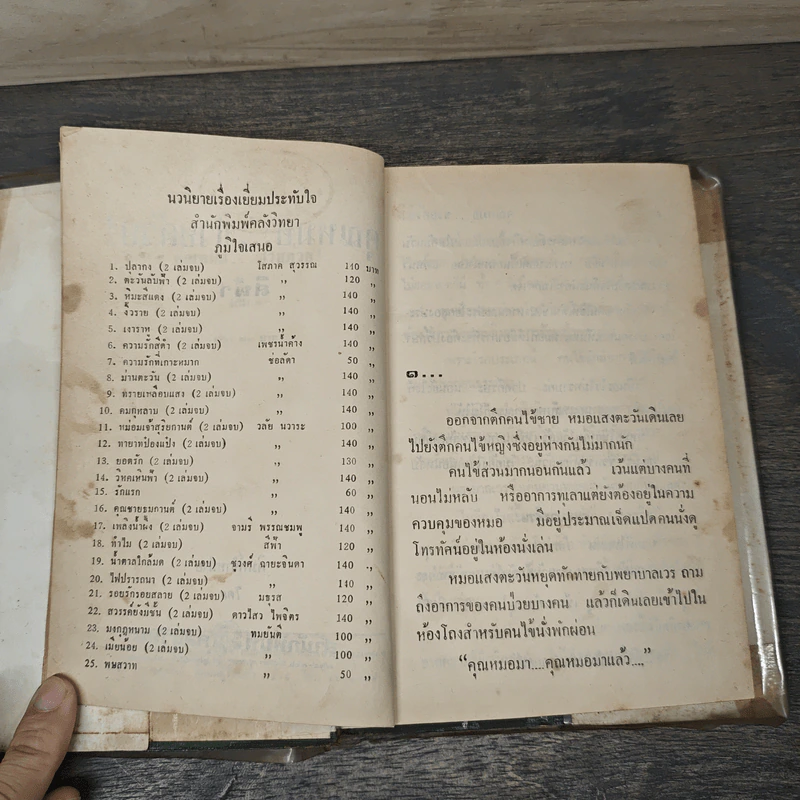 นวนิยายเรื่องเยี่ยมประทับใจ
สำนักพิมพ์คลังวิทยา
ภูมิใจเสนอ
1. ปลากง (2 เล่มจบ) โสภาค สุวรรณ 140 บาท
2. ตะวันลับฟ้า (2 เล่มจบ) ,, 120 ,,
3. หิมะสีแดง (2 เล่มจบ) ,, 140 ,,
4. งิ้วราย (2 เล่มจบ) ,, 140 ,,
5. เงาราหู (2 เล่มจบ) ,, 140 ,,
6. ความรักสีดำ (2 เล่มจบ) เพชรน้ำค้าง 140 ,,
7. ความรักที่เกาะหมาก ช่อลัดา 50 ,,
8. ม่านตะวัน (2 เล่มจบ) ,, 140 ,,
9. ทรายเหลือบแสง (2 เล่มจบ) ,, 140 ,,
10. คมกุหลาบ (2 เล่มจบ) ,, 140 ,,
11. หม่อมเจ้าสุริยกานต์ (2 เล่มจบ) วลัย นวาระ 100 ,,
12. ทายาทป๋องแป๋ง (2 เล่มจบ) ,, 140 ,,
13. ยอดรัก (2 เล่มจบ) ,, 130 ,,
14. วิหคเหินฟ้า (2 เล่มจบ) ,, 140 ,,
15. รักแรก ,, 60 ,,
16. คุณชายธมกานต์ (2 เล่มจบ) ,, 140 ,,
17. เพลิงน้ำผึ้ง (2 เล่มจบ) จามรี พรรณชมพู 140 ,,
18. ทำไม (2 เล่มจบ) สีฟ้า 120 ,,
19. น้ำตาลใกล้มด (2 เล่มจบ) ชูวงศ์ ฉายะจินดา 140 ,,
20. ไฟปรารถนา (2 เล่มจบ) ,, 140 ,,
21. รอยรักรอยสลาย (2 เล่มจบ) มธุรส 120 ,,
22. สวรรค์ยังมีชั้น (2 เล่มจบ) ดาวไสว ไพจิตร 140 ,,
23. มงกุฎหนาม (2 เล่มจบ) ทมยันตี 100 ,,
24. เมียน้อย (2 เล่มจบ) ,, 100 ,,
25. พิษสวาท ,, 50 ,,
๑...
ออกจากตึกคนไข้ชาย หมอแสงตะวันเดินเลย
ไปยังตึกคนไข้หญิงซึ่งอยู่ห่างกันไม่มากนัก
คนไข้ส่วนมากนอนกันแล้ว เว้นแต่บางคนที่
นอนไม่หลับ หรืออาการทุเลาแต่ยังต้องอยู่ในความ
ควบคุมของหมอ มีอยู่ประมาณเจ็ดแปดคนนั่งดู
โทรทัศน์อยู่ในห้องนั่งเล่น
หมอแสงตะวันหยุดทักทายกับพยาบาลเวร ถาม
ถึงอาการของคนป่วยบางคน แล้วก็เดินเลยเข้าไปใน
ห้องโถงสำหรับคนไข้นั่งพักผ่อน
“คุณหมอมา....คุณหมอมาแล้ว....”